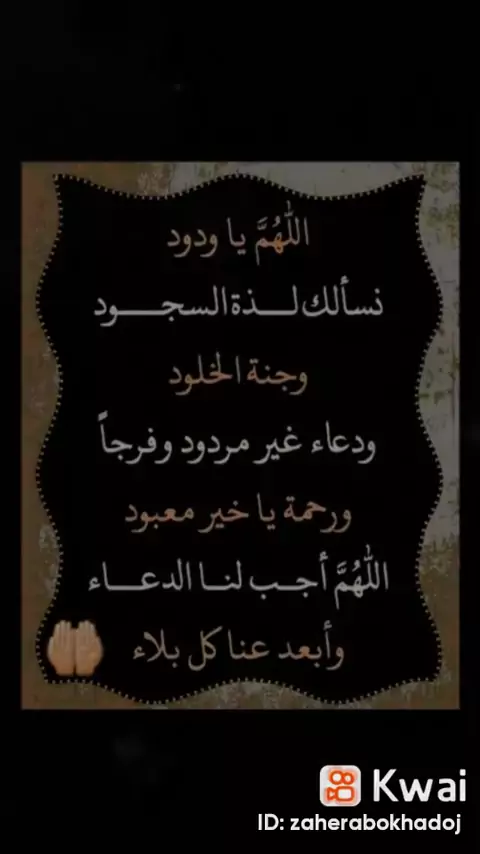 اللَّهُمَّ يا ودود
نسألك لـــذة السجـــود
وجنة الخلود
ودعاء غير مردود وفرجاً
ورحمة يا خير معبود
اللَّهُمَّ أجـب لنـا الدعـــاء
وأبعد عنا كل بلاء
Kwai
ID: zaherabokhadoj